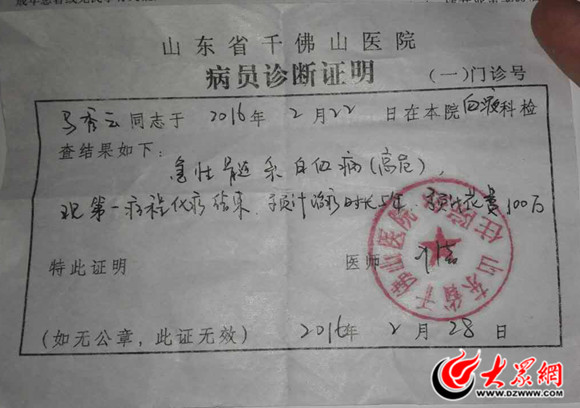 山东省千佛山医院
病员诊断证明
(一)门诊号
马秀云同志于 2016年 2月22日在本院血液科检
查结果如下：
急性髓系白血病(高危)，
现第一疗程化疗结束，予预计治疗时长5年，预计花费100万
特此证明 医师
(如无公章，此证无效) 2016年 2月28日
山东省千佛山医院
住院
大众網
WWW.DZWWW.COM